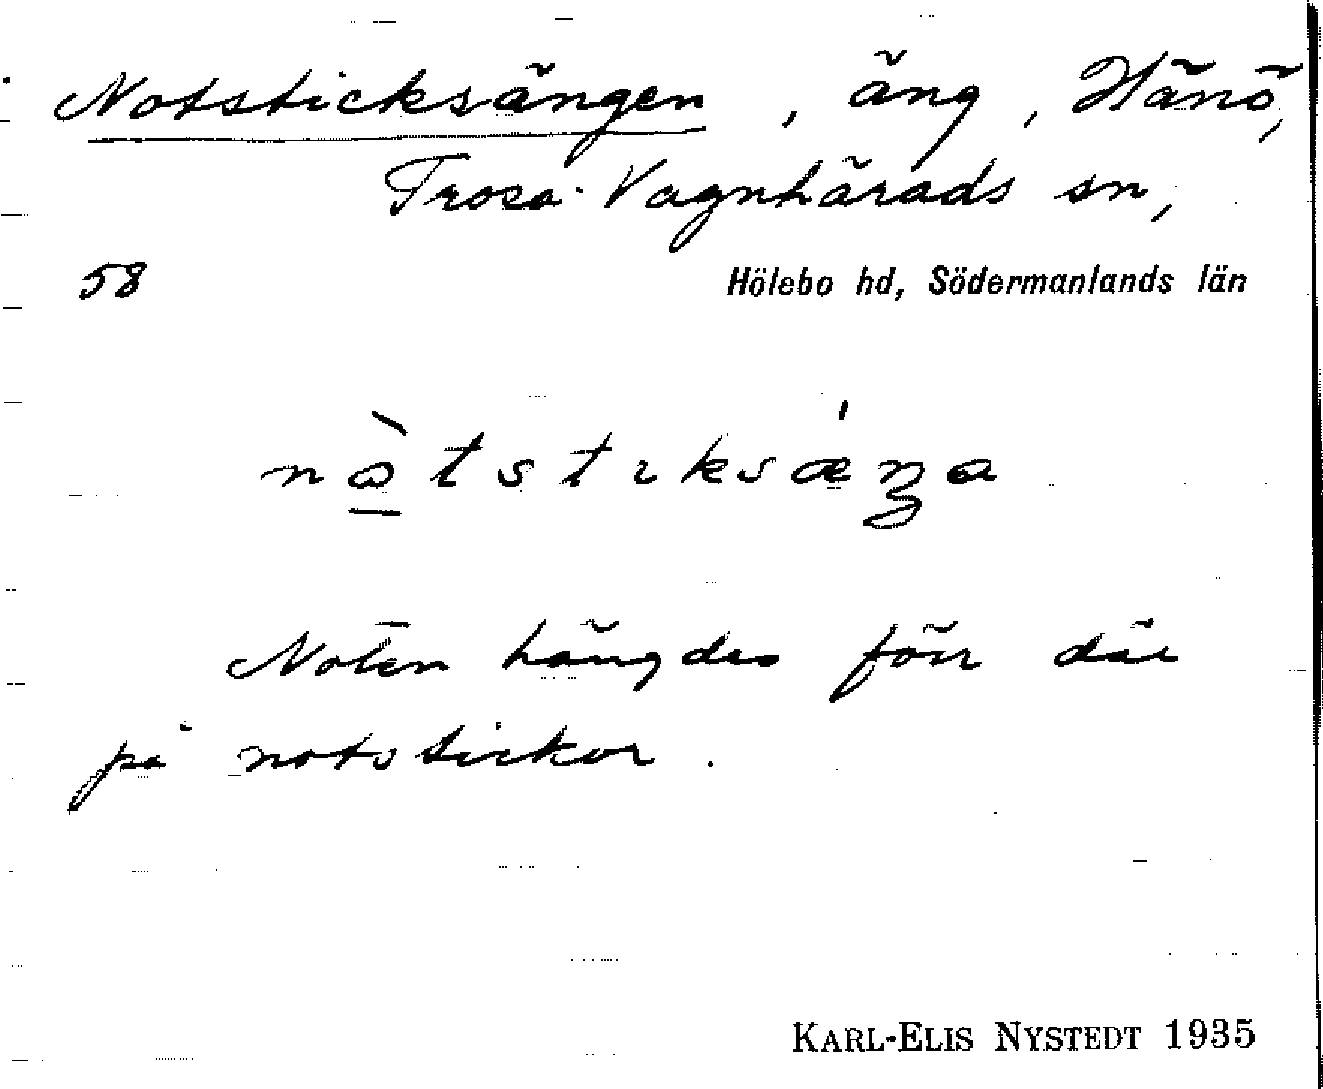 Notsticksängen, äng, Hänö,
Trosa-Vagnhärads sn,
58 Hölebo hd, Södermanlands län
nòtstıksǽŋa
Noten hängdes förr där
på notstickor.
KARL-ELIS NYSTEDT 1935